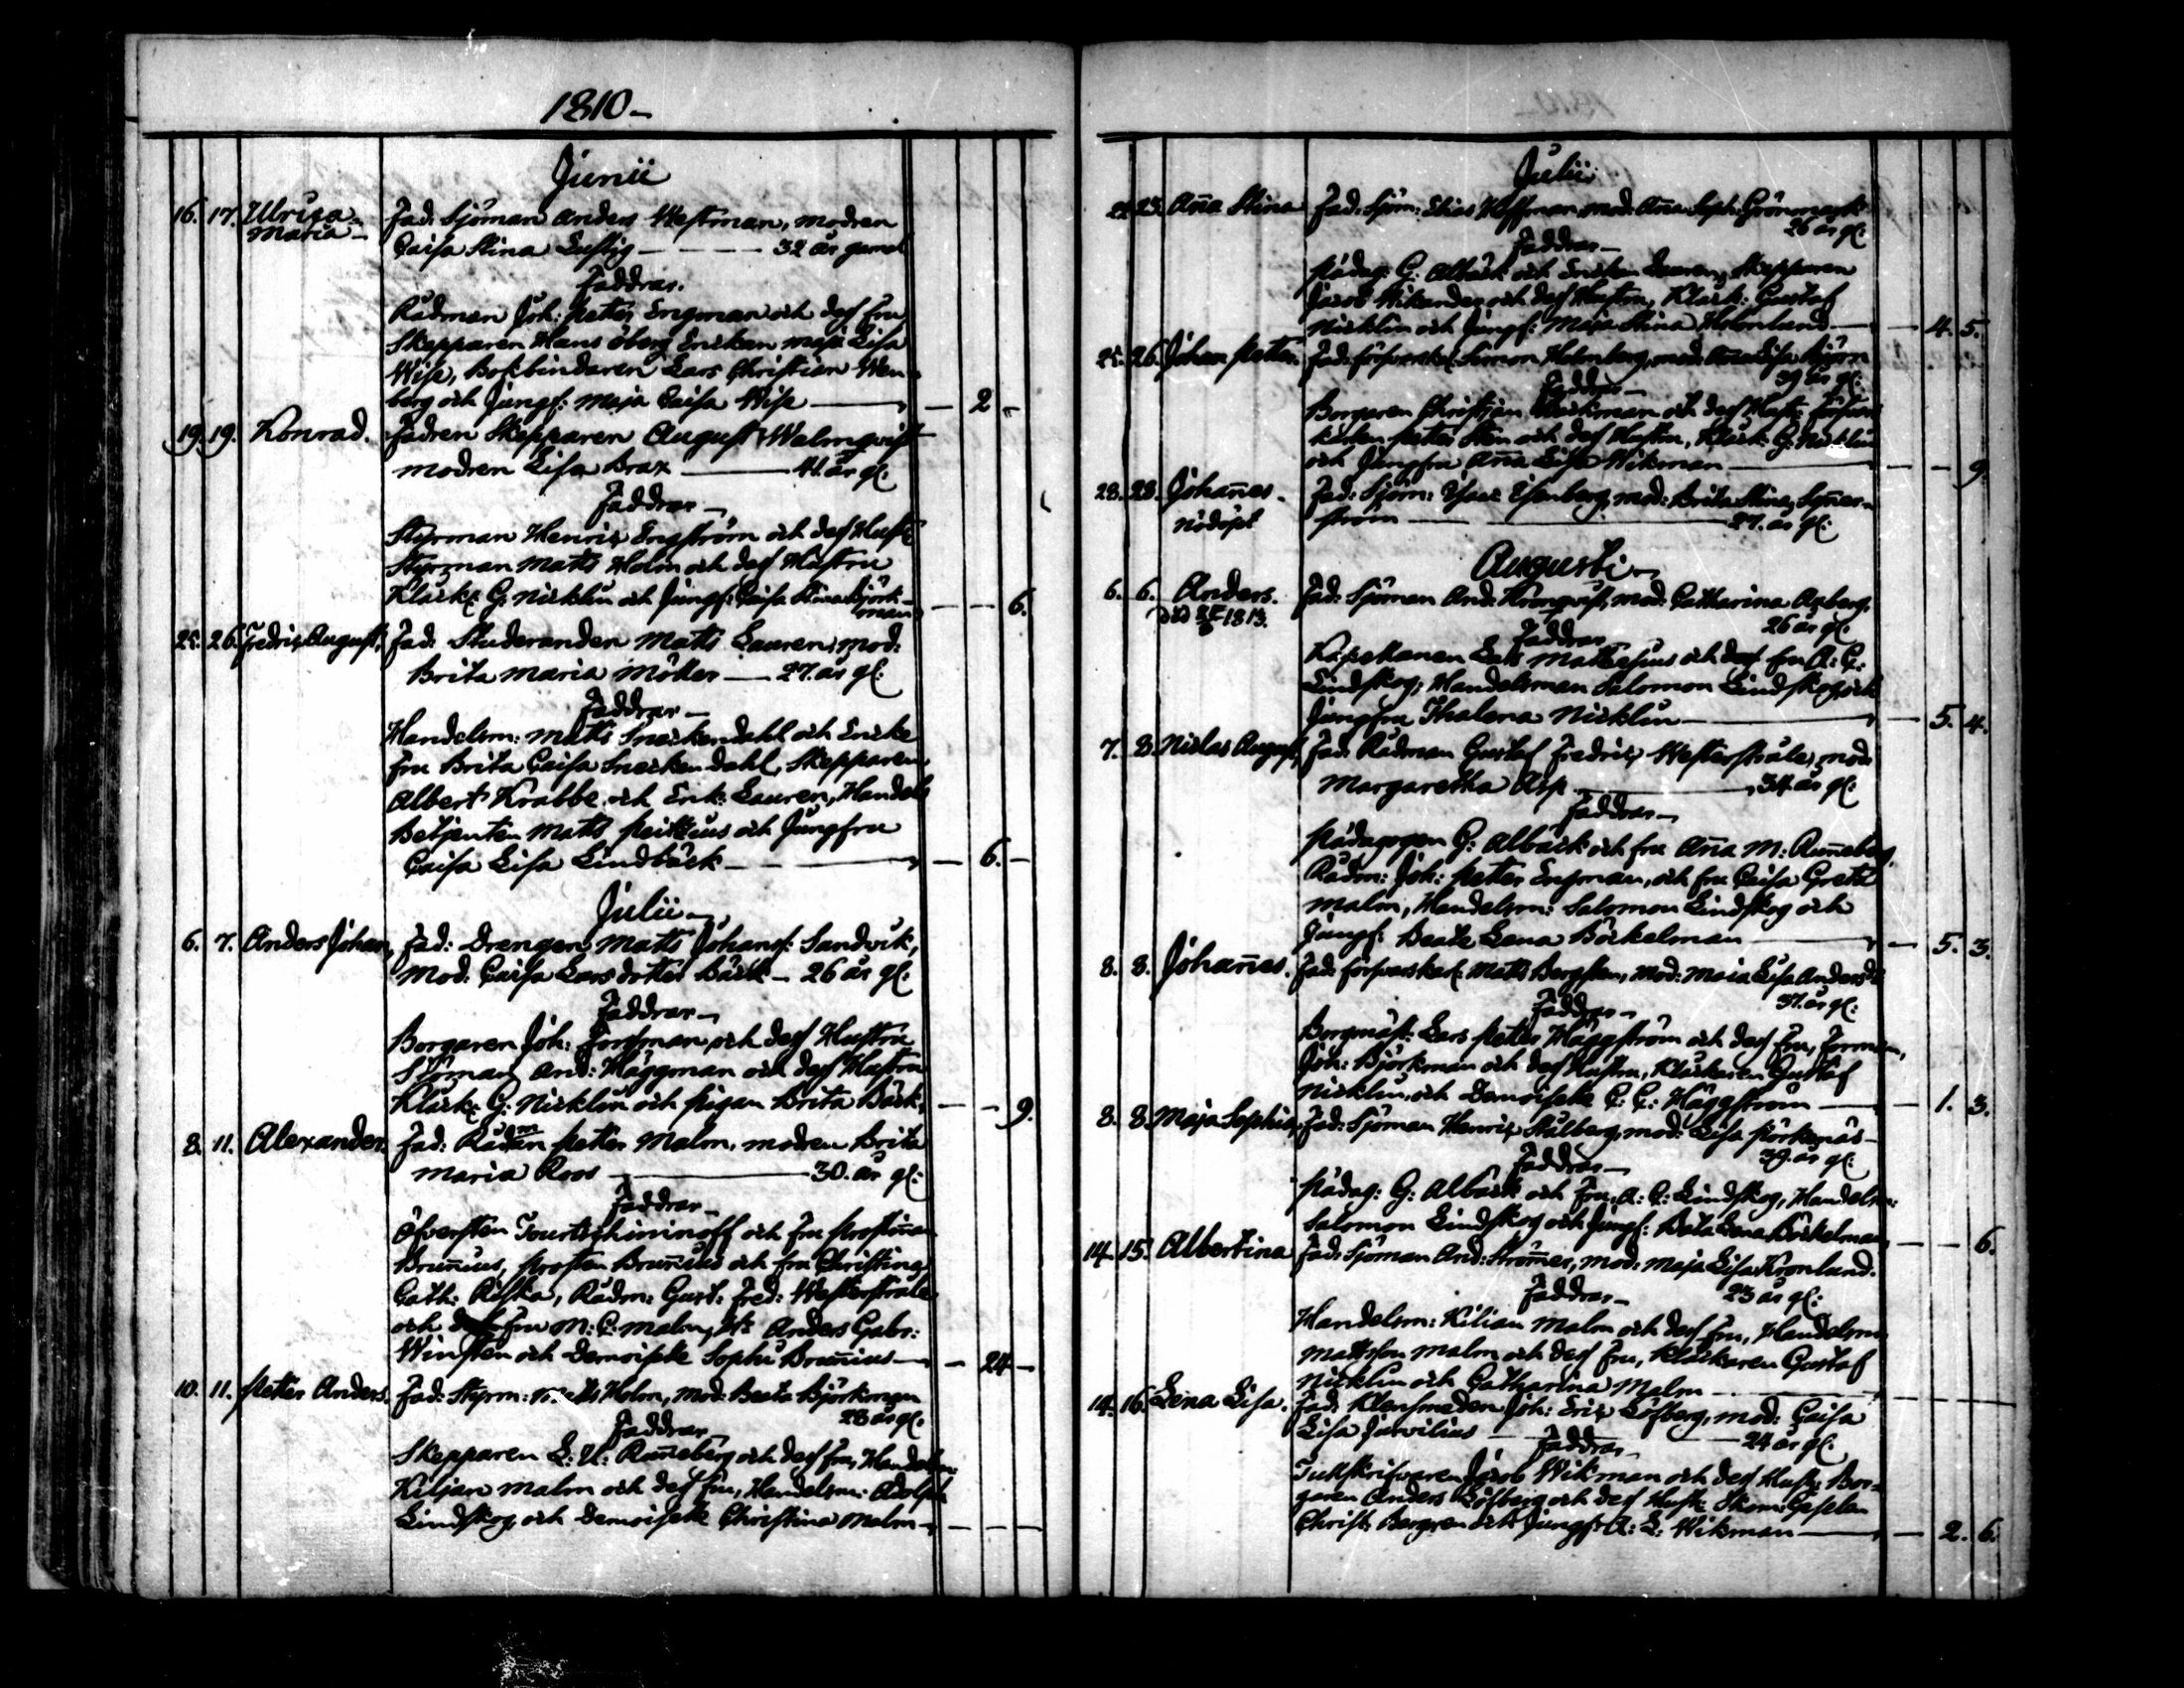 1810 –
Junii
16. 17. Ulrica Fad: Sjöman Anders Westman, modren
Maria – Caisa Stina Lustig – 32 år gamel
Faddrar.
Rådman Joh: Petter Engman och dess fru
Skepparen Hans Öberg Enckan Maja Lisa
Wise, Bokbindaren Lars Christian Wen-
berg och Jungf: Maja Caisa Wise – – 2 –
19. 19. Konrad. Fadren Skepparen August Walmqvist
modren Lisa Brax – 41. år gl:
Faddrar –
Styrman Henric Engström och dess Hust:
Styrman Matts Holm och dess Hustru
Klåck: G: Nicklin och Jungf: Caisa Stina Björk-
man – – – 6.
25. 26. Fredric August, Fad: Studeranden Matts Lauren, mod:
Brita Maria Möller – 27. år gl:
Faddrar –
Handelsm: Matts Sneckendahl och Encke
fru Brita Caisa Sneckendahl, Skepparen
Albert Krabbe och Enk: Lauren, Handels
Betjenten Matts och Jungfru
Caisa Lisa Lindbäck – – 6. –
Julii –
6. 7. Anders Johan, Fad: Drengen Matts Johansf: Sandvik,
Mod. Caisa Larsdotter Bäck – 26 år gl:
Faddrar –
Borgaren Joh: Forsman och dess Hustru
Sjöman And: Häggman och dess Hustru
Klåck: G: Nicklin och Pigan Brita Bäck, – – 9.
8. 11. Alexander. Fad: Rådman Petter Malm, modren Brita
Maria Roos – 30. år gl:
Faddrar –
Öfversten och fru Prostinnan
Brunnius, Prosten Brunnius och fru Christina
Cath: Riska, Rådm: Gust: Fred: Westerstråle
och fru M: C: Malm, Anders Gabr:
Winsten och Demoiselle Sophi Brunnius – – 24 –
10. 11. Petter Anders. Fad: Styrm: Matts Holm, Mod: Beata Björkman
28 år gl:
Faddrar –
Skepparen L: U: Runneberg och dess fru, Handelsm:
Kiljan Malm och dess fru, Handelsm: Adolph
Lindskog, och Demoiselle Christina Malm – – – –
Julii
22. 23. Anna Stina Fad: Sjöm: Elias Hoffman, mod: Anna Soph: Grönmark
26 år gl:
Faddrar –
Pädag: G: Albäck och Enckan Lauren, Skepparen
Jacob Wikander och dess Hustru, Klåck: Gustaf
Nicklin och Jungf: Maja Stina Holmlund – – 4. 5.
25. 26. Johan Petter. Fad: Försvarskarl: Simon Holmberg, mod: Anna Lisa Björn
39 år gl:
Faddrar –
Borgaren Christian och dess Hust: Försvars
karlen Petter Sten och dess Hustru, Klåck: G: Nicklin
och Jungfru Anna Lisa Wikman – – – 9.
28. 28. Johannes – Fad: Sjöm: Isac Isenberg, mod: Brita Stina
Nödöpt ström – 27. år gl:
Augusti –
6. 6. Anders. Fad: Sjöman And: Kronqvist, mod: Catharina Åberg,
död 1813. 26 år gl:
Faddrar –
Kapellanen Eric Mathesius och dess fru A: C:
Lindskog, Handelsman Salomon Lindskog och
Jungfru Thalena Nicklin – – 5. 4.
7. 8. Niclas August, Fad: Rådman Gustaf Fredric Westerstråle, mod:
Margaretha Asp – 34. år gl:
Faddrar –
Pädagogen G: Albäck och fru Anna M: Runneberg,
Rådm: Joh: Petter Engman, och fru Caisa Greta
Malm, Handelsm: Salomon Lindskog och
Jungf: Beata Lena Böckelman – – 5. 3.
8. 8. Johannes. Fad: försvarskarl: Matts Bergsten, Mod: Maia Lisa Andersd:
37. år gl:
Faddrar –
Borgmäst: Lars Petter Häggström och dess fru, Torman,
Joh: Björkman och dess Hustru, Klåckaren Gustaf
Nicklin, och Demoiselle C: C: Häggström – – 1. 3.
8. 8. Maja Sophia, Fad: Sjöman Henric Stålberg, mod: Lisa
39. år gl:
Faddrar –
Pädag: G: Albäck och Fru A: C: Lindskog, Handelsm:
Salomon Lindskog och Jungf: Beata Lena Böckelman, – – 6.
14. 15. Albertina Fad: Sjöman And: Strömer, mod: Maja Lisa Kronlund.
23 år gl:
Faddrar –
Handelsm: Kilian Malm och dess fru, Handelsm:
Mattsson Malm och dess fru, Klåckaren Gustaf
Nicklin och Catharina Malm – – – –
14. 16. Lena Lisa. Fad: Klensmeden Joh: Eric Löfberg, mod: Caisa
Lisa Jarvilius – 24 år gl:
Faddrar –
Tullskrifvaren Jacob Wikman och dess Hust: Bor-
garen Anders Löfberg och dess Hust: Skom: Gesellen
Christ: Bergren och Jungf: A: L: Wikman – – 2. 6.